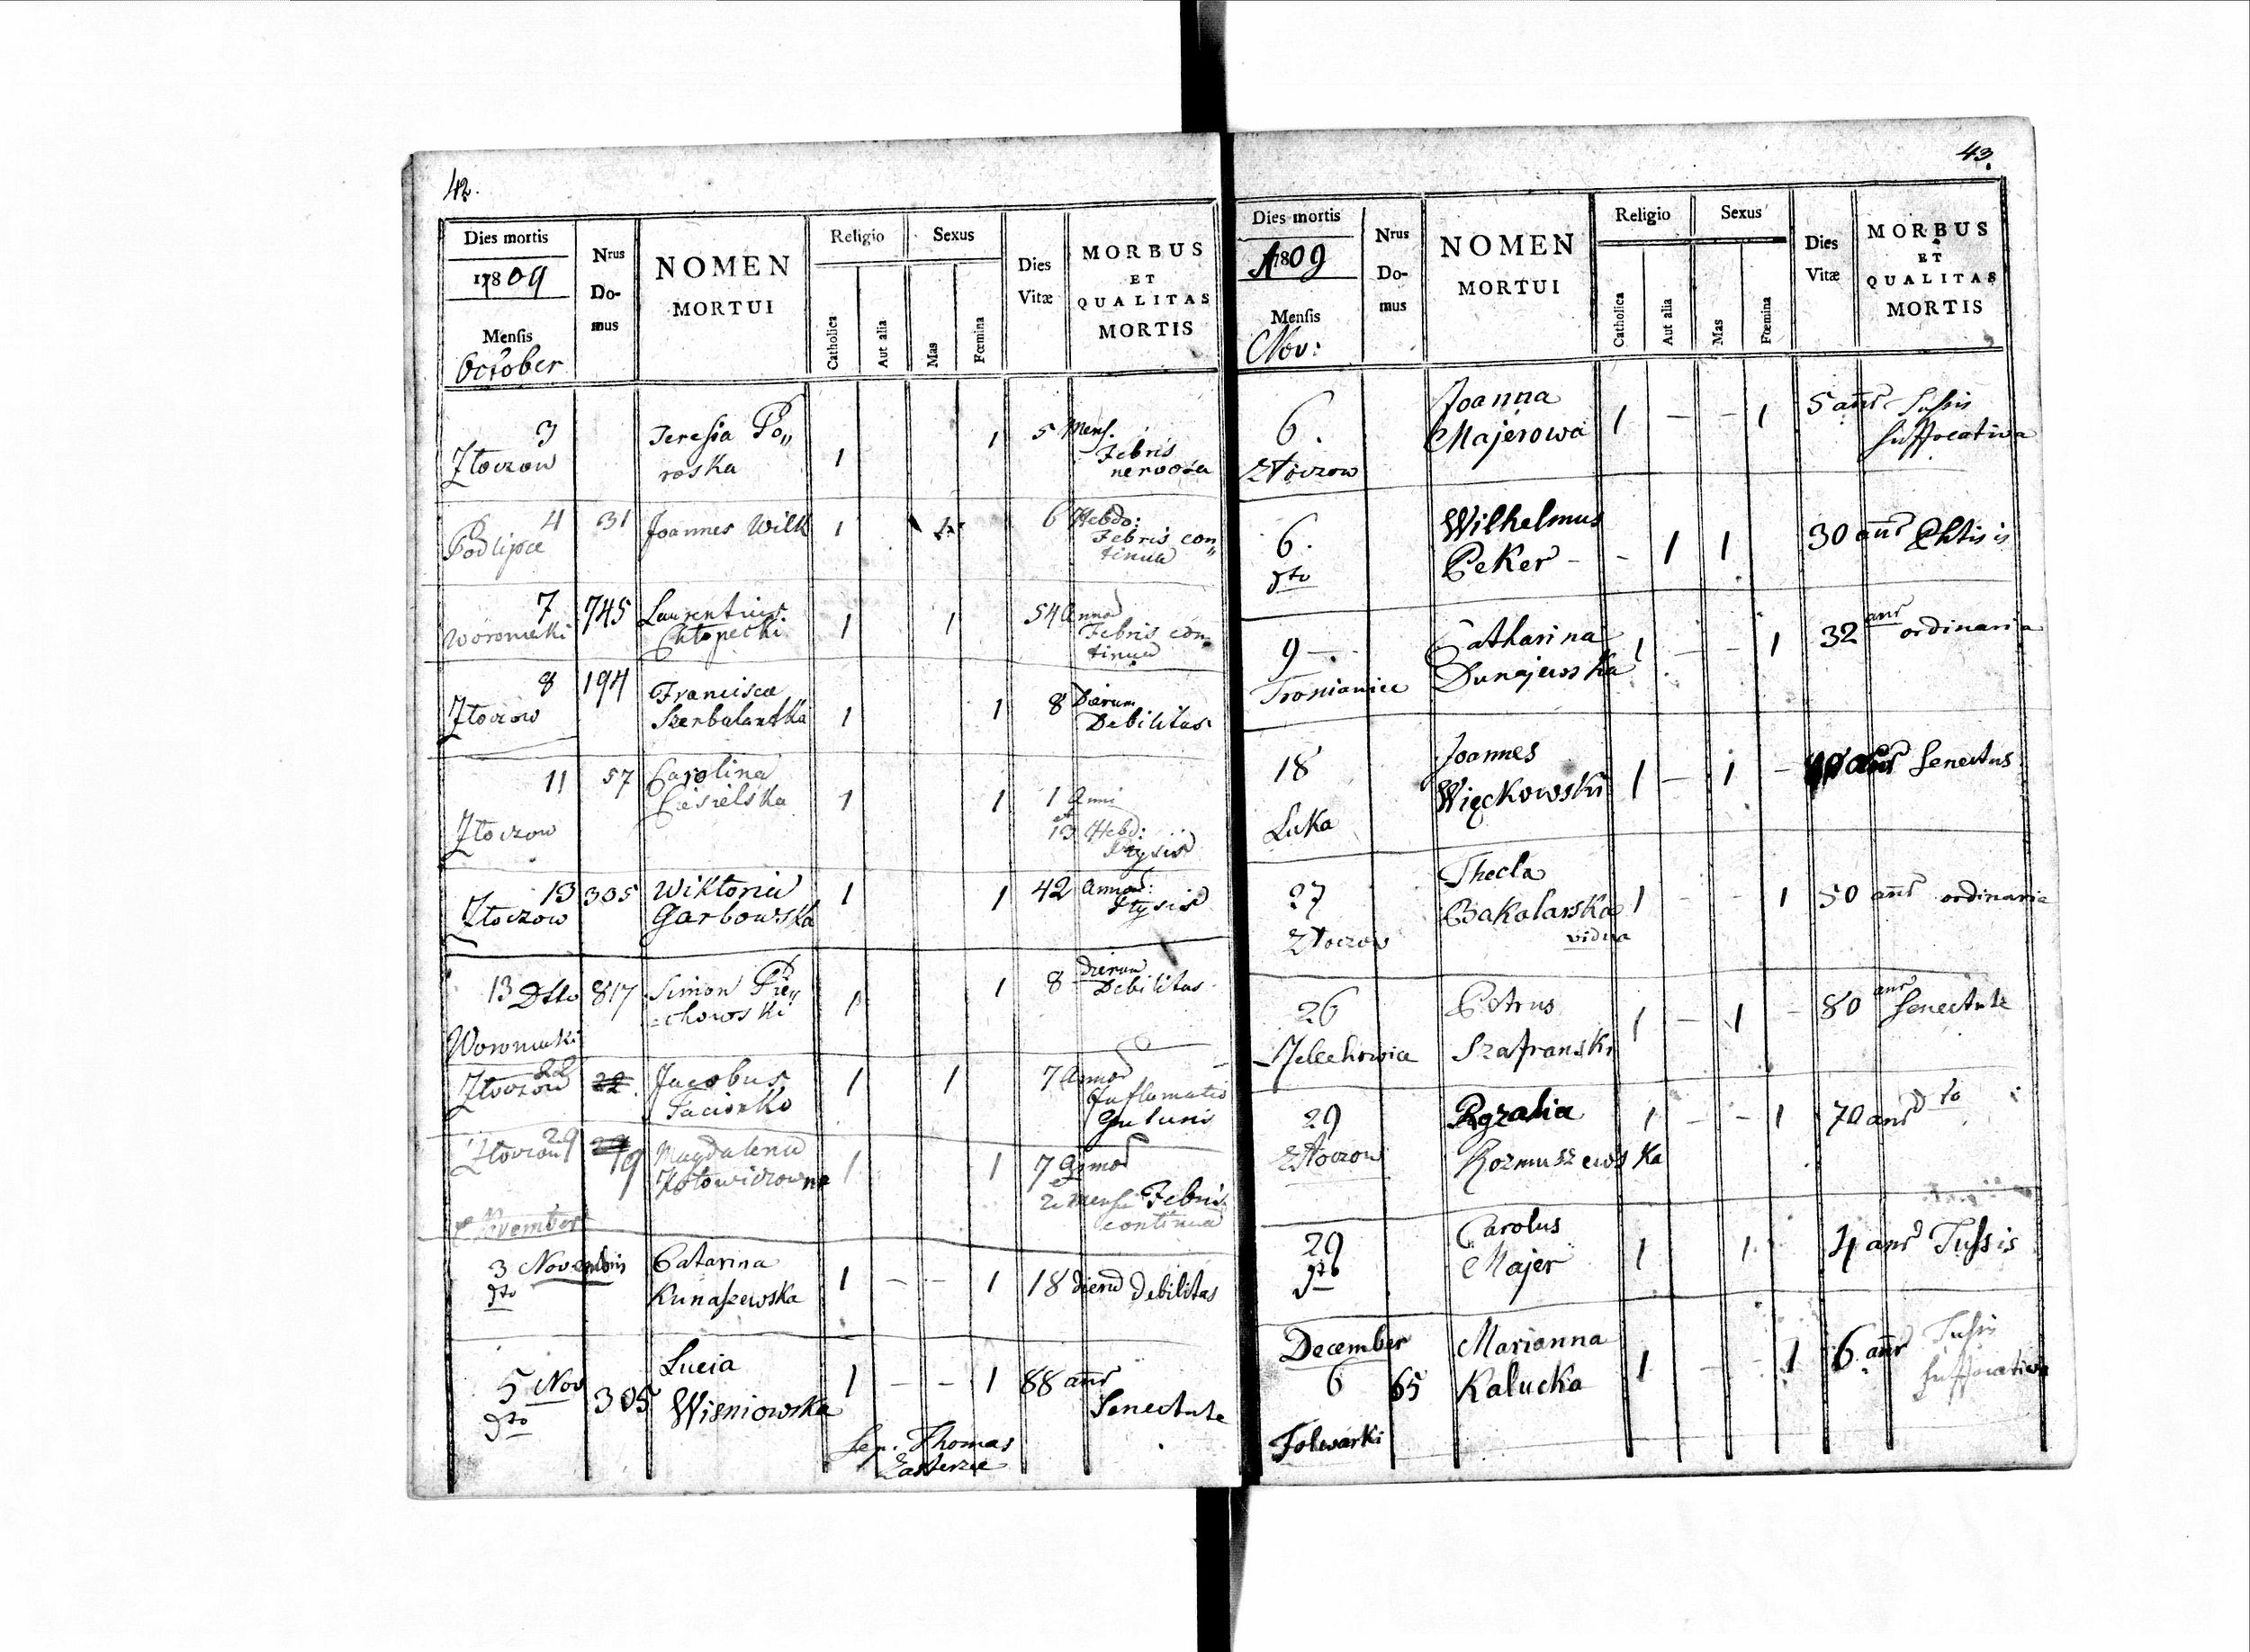 42.
Dies mortis
1809
Mensis
October
Nrus
Do-
mus
NOMEN
MORTUI
Religio
Catholica
Aut alia
Sexus
Mas
Fœmina
Dies
Vitæ
MORBUS
ET
QUALITAS
MORTIS
3 Teresia Po„ 1 1 5 Mens.
Złoczow roska Febris
nervosa
4 31 Joannes Wilk 1 1 6 Hebdo:
Podlipce Febris con„
tinua
7 745 Laurentius 1 1 54 Annor
Woroniaki Chłopecki Febris con
tinua
8 194 Francisca 1 1 8 Dierum
Złoczow Debilitas
11 57 Carolina 1 1 1 Anni
Złoczow Ciesielska et
13 Hebd:
13 305 Wiktoria 1 1 42 Annor:
Złoczow Garbowska
13 Dtto 817 Simon Pie„ 1 1 8 Dierum
Woroniaki =chowski Debilitas
22 Jacobus 1 1 7 Annor
Złoczow Inflamatio
29 19 Magdalena 1 1 7 Annor
Złoczow 2 Mens: Febris
continua
November
3 Novembris Catarina 1 - - 1 18 dierū debilitas
dto Kunaszewska
5 Nov 305 Lucia 1 - - 1 88 anr
dto Wisniowska Senectute
Sep. Thomas
43.
Dies mortis
1809
Mensis
Nov:
Nrus
Do-
mus
NOMEN
MORTUI
Religio
Catholica
Aut alia
Sexus
Mas
Fœmina
Dies
Vitæ
MORBUS
ET
QUALITAS
MORTIS
6. Joanna 1 - - 1 5 anr Tussis
Złoczow Majerowa suffocativa
6. Wilhelmus - 1 1 30 anr Phtisis
dto Peker -
9 - Catharina 1 - - 1 32 anr ordinaria
Dunajewska
18 Joannes 1 - 1 - anr Senectus
Luka Więckowski
27 Thecla 1 - - 1 50 anr ordinaria
Złoczow Bakalarska
vidua
26 Petrus 1 - 1 - 80 anr Senectute
Jelechowice Szafranski
29 Rozalia 1 - - 1 70 anr dto
Złoczow Rozmuszewska
29 Carolus 1 1 4 anr Tussis
dto Majer
December Marianna 1 - - 1 6 anr Tussis
6 65 Kalucka suffocativa
Folwarki